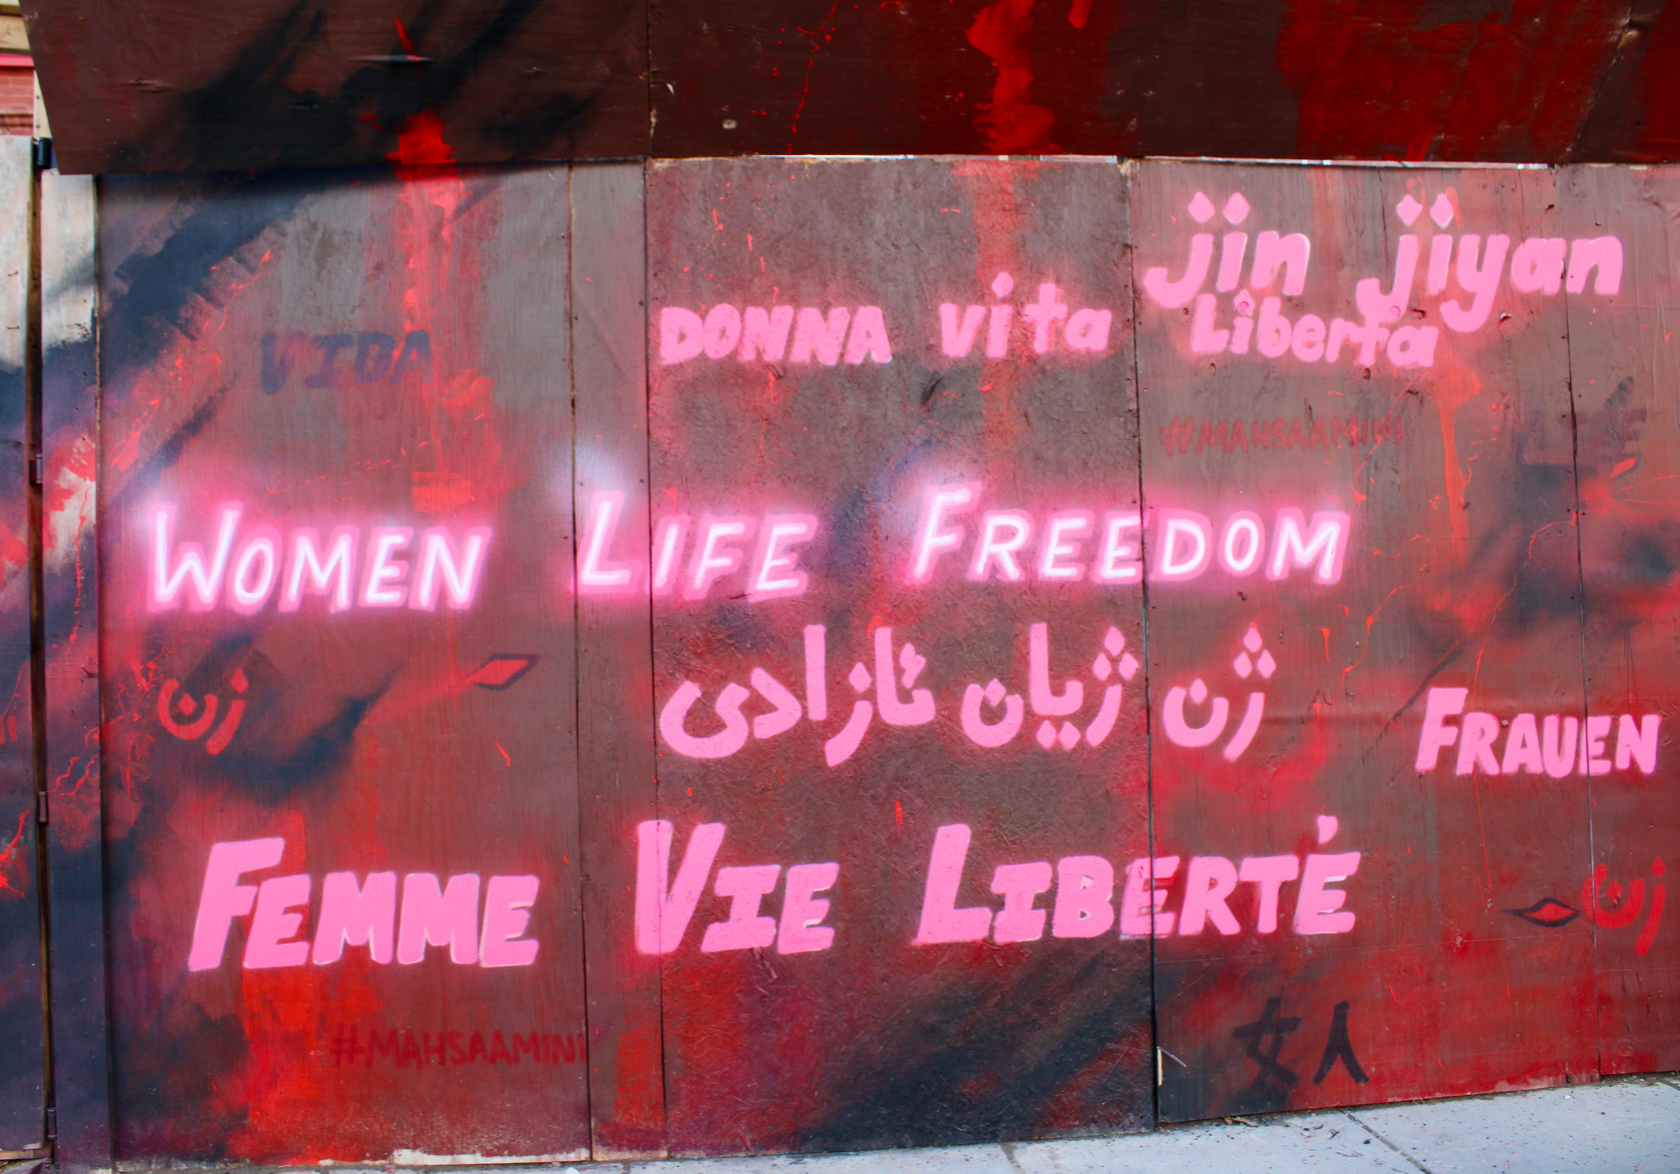 jin jiyan
DONNA vita Liberta
VIDA
#MAHSAAMINI
WOMEN LIFE FREEDOM
ژن ژیان ئازادی
زن
FRAUEN
FEMME VIE LIBERTÉ
زن
#MAHSAAMINI
女人